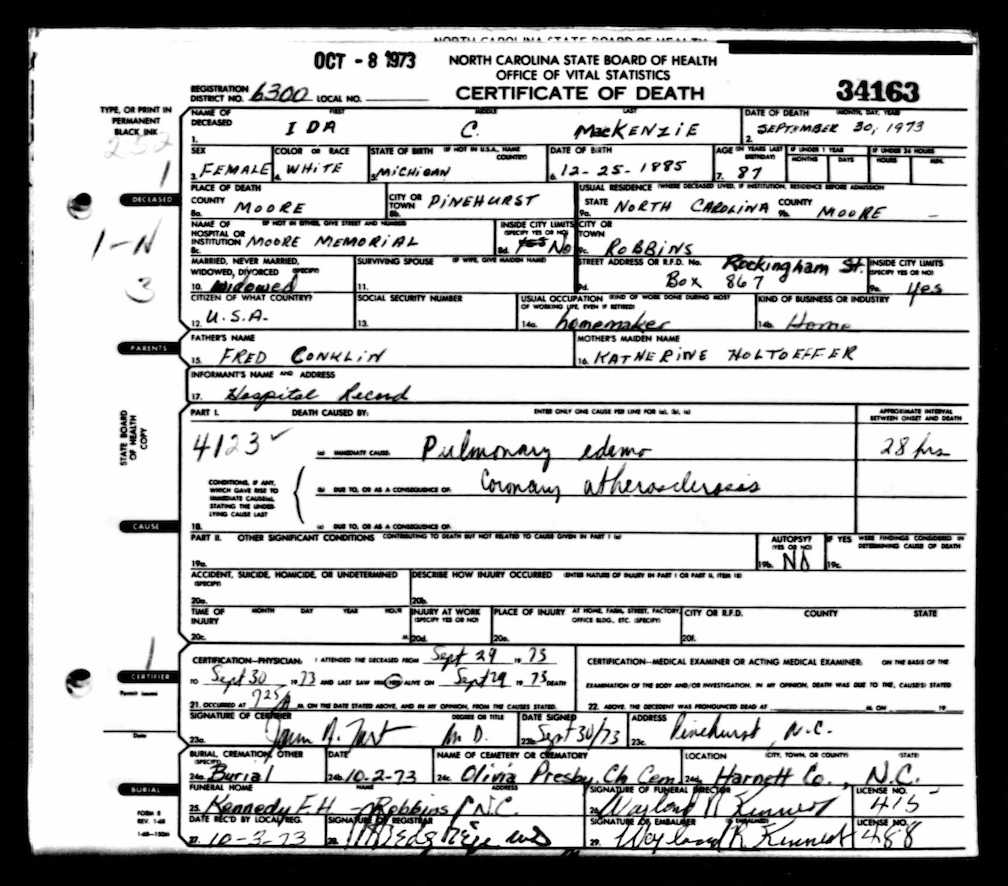 NORTH CAROLINA STATE BOARD OF HEALTH
OCT - 8 1973
NORTH CAROLINA STATE BOARD OF HEALTH
OFFICE OF VITAL STATISTICS
REGISTRATION DISTRICT NO. 6300 LOCAL NO.
CERTIFICATE OF DEATH
34163
TYPE, OR PRINT IN
PERMANENT
BLACK INK
252
NAME OF DECEASED FIRST MIDDLE LAST DATE OF DEATH (MONTH, DAY, YEAR)
1. IDA C. MacKENZIE 2. SEPTEMBER 30, 1973
SEX COLOR OR RACE STATE OF BIRTH (IF NOT IN U.S.A., NAME COUNTRY) DATE OF BIRTH AGE (IN YEARS LAST BIRTHDAY) IF UNDER 1 YEAR MONTHS DAYS IF UNDER 24 HOURS HOURS MIN.
3. FEMALE 4. WHITE 5. MICHIGAN 6. 12-25-1885 7. 87
1
DECEASED
PLACE OF DEATH USUAL RESIDENCE (WHERE DECEASED LIVED, IF INSTITUTION, RESIDENCE BEFORE ADMISSION
COUNTY 8a. MOORE CITY OR TOWN 8b. PINEHURST STATE 9a. NORTH CAROLINA COUNTY 9b. MOORE –
1-N
NAME OF HOSPITAL OR INSTITUTION (IF NOT IN EITHER, GIVE STREET AND NUMBER) INSIDE CITY LIMITS (SPECIFY YES OR NO) CITY OR TOWN
8c. MOORE MEMORIAL 8d. YES No 9c. ROBBINS
3
MARRIED, NEVER MARRIED, WIDOWED, DIVORCED (SPECIFY) SURVIVING SPOUSE (IF WIFE, GIVE MAIDEN NAME) STREET ADDRESS OR R.F.D. No. Rockingham St. INSIDE CITY LIMITS (SPECIFY YES OR NO)
10. Widowed 11. 9d. Box 867 9e. yes
CITIZEN OF WHAT COUNTRY? SOCIAL SECURITY NUMBER USUAL OCCUPATION (KIND OF WORK DONE DURING MOST OF WORKING LIFE, EVEN IF RETIRED) KIND OF BUSINESS OR INDUSTRY
12. U.S.A. 13. 14a. homemaker 14b. Home
PARENTS
FATHER'S NAME MOTHER'S MAIDEN NAME
15. FRED CONKLIN 16. KATHERINE HOLTOEFFER
INFORMANT'S NAME AND ADDRESS
17. Hospital Record
STATE BOARD
OF HEALTH
COPY
PART I. DEATH CAUSED BY: ENTER ONLY ONE CAUSE PER LINE FOR (a), (b), (c) APPROXIMATE INTERVAL BETWEEN ONSET AND DEATH
4123 ✓ (a) IMMEDIATE CAUSE: Pulmonary edema 28 hrs
CONDITIONS, IF ANY,
WHICH GAVE RISE TO
IMMEDIATE CAUSE(A),
STATING THE UNDER-
LYING CAUSE LAST
(b) DUE TO, OR AS A CONSEQUENCE OF: Coronary atherosclerosis
CAUSE
18. (c) DUE TO, OR AS A CONSEQUENCE OF:
PART II. OTHER SIGNIFICANT CONDITIONS CONTRIBUTING TO DEATH BUT NOT RELATED TO CAUSE GIVEN IN PART I (a) AUTOPSY? (YES OR NO) IF YES WERE FINDINGS CONSIDERED IN DETERMINING CAUSE OF DEATH
19a. 19b. NO 19c.
ACCIDENT, SUICIDE, HOMICIDE, OR UNDETERMINED (SPECIFY) DESCRIBE HOW INJURY OCCURRED (ENTER NATURE OF INJURY IN PART I OR PART II, ITEM 18)
20a. 20b.
TIME OF INJURY MONTH DAY YEAR HOUR INJURY AT WORK (SPECIFY YES OR NO) PLACE OF INJURY AT HOME, FARM, STREET, FACTORY, OFFICE BLDG., ETC. (SPECIFY) CITY OR R.F.D. COUNTY STATE
20c. M. 20d. 20e. 20f.
1
CERTIFIER
CERTIFICATION—PHYSICIAN: I ATTENDED THE DECEASED FROM Sept 29 19 73
TO Sept 30 1973 AND LAST SAW HIM HER ALIVE ON Sept 29 19 73 DEATH
21. OCCURRED AT 725A M. ON THE DATE STATED ABOVE, AND IN MY OPINION, FROM THE CAUSES STATED.
CERTIFICATION—MEDICAL EXAMINER OR ACTING MEDICAL EXAMINER: ON THE BASIS OF THE
EXAMINATION OF THE BODY AND/OR INVESTIGATION, IN MY OPINION, DEATH WAS DUE TO THE, CAUSE(S) STATED
22. ABOVE. THE DECEDENT WAS PRONOUNCED DEAD AT M. ON 19
Permit issued
Date
SIGNATURE OF CERTIFIER DEGREE OR TITLE DATE SIGNED ADDRESS
23a. M.D. 23b. Sept 30/73 23c. Pinehurst, N.C.
BURIAL, CREMATION, OTHER (SPECIFY) DATE NAME OF CEMETERY OR CREMATORY LOCATION (CITY, TOWN, OR COUNTY) (STATE)
24a. Burial 24b. 10-2-73 24c. Olivia Presby. Ch Cem. 24d. Harnett Co., N.C.
BURIAL
FUNERAL HOME NAME ADDRESS SIGNATURE OF FUNERAL DIRECTOR LICENSE NO.
25. Kennedy F.H – Robbins, N.C. 26. Wayland R Kennedy 415
FORM 8
REV. 1-68
DATE REC'D BY LOCAL REG. SIGNATURE OF REGISTRAR SIGNATURE OF EMBALMER (IF EMBALMED) LICENSE NO.
27. 10-3-73 28. 29. Wayland R Kennedy 488